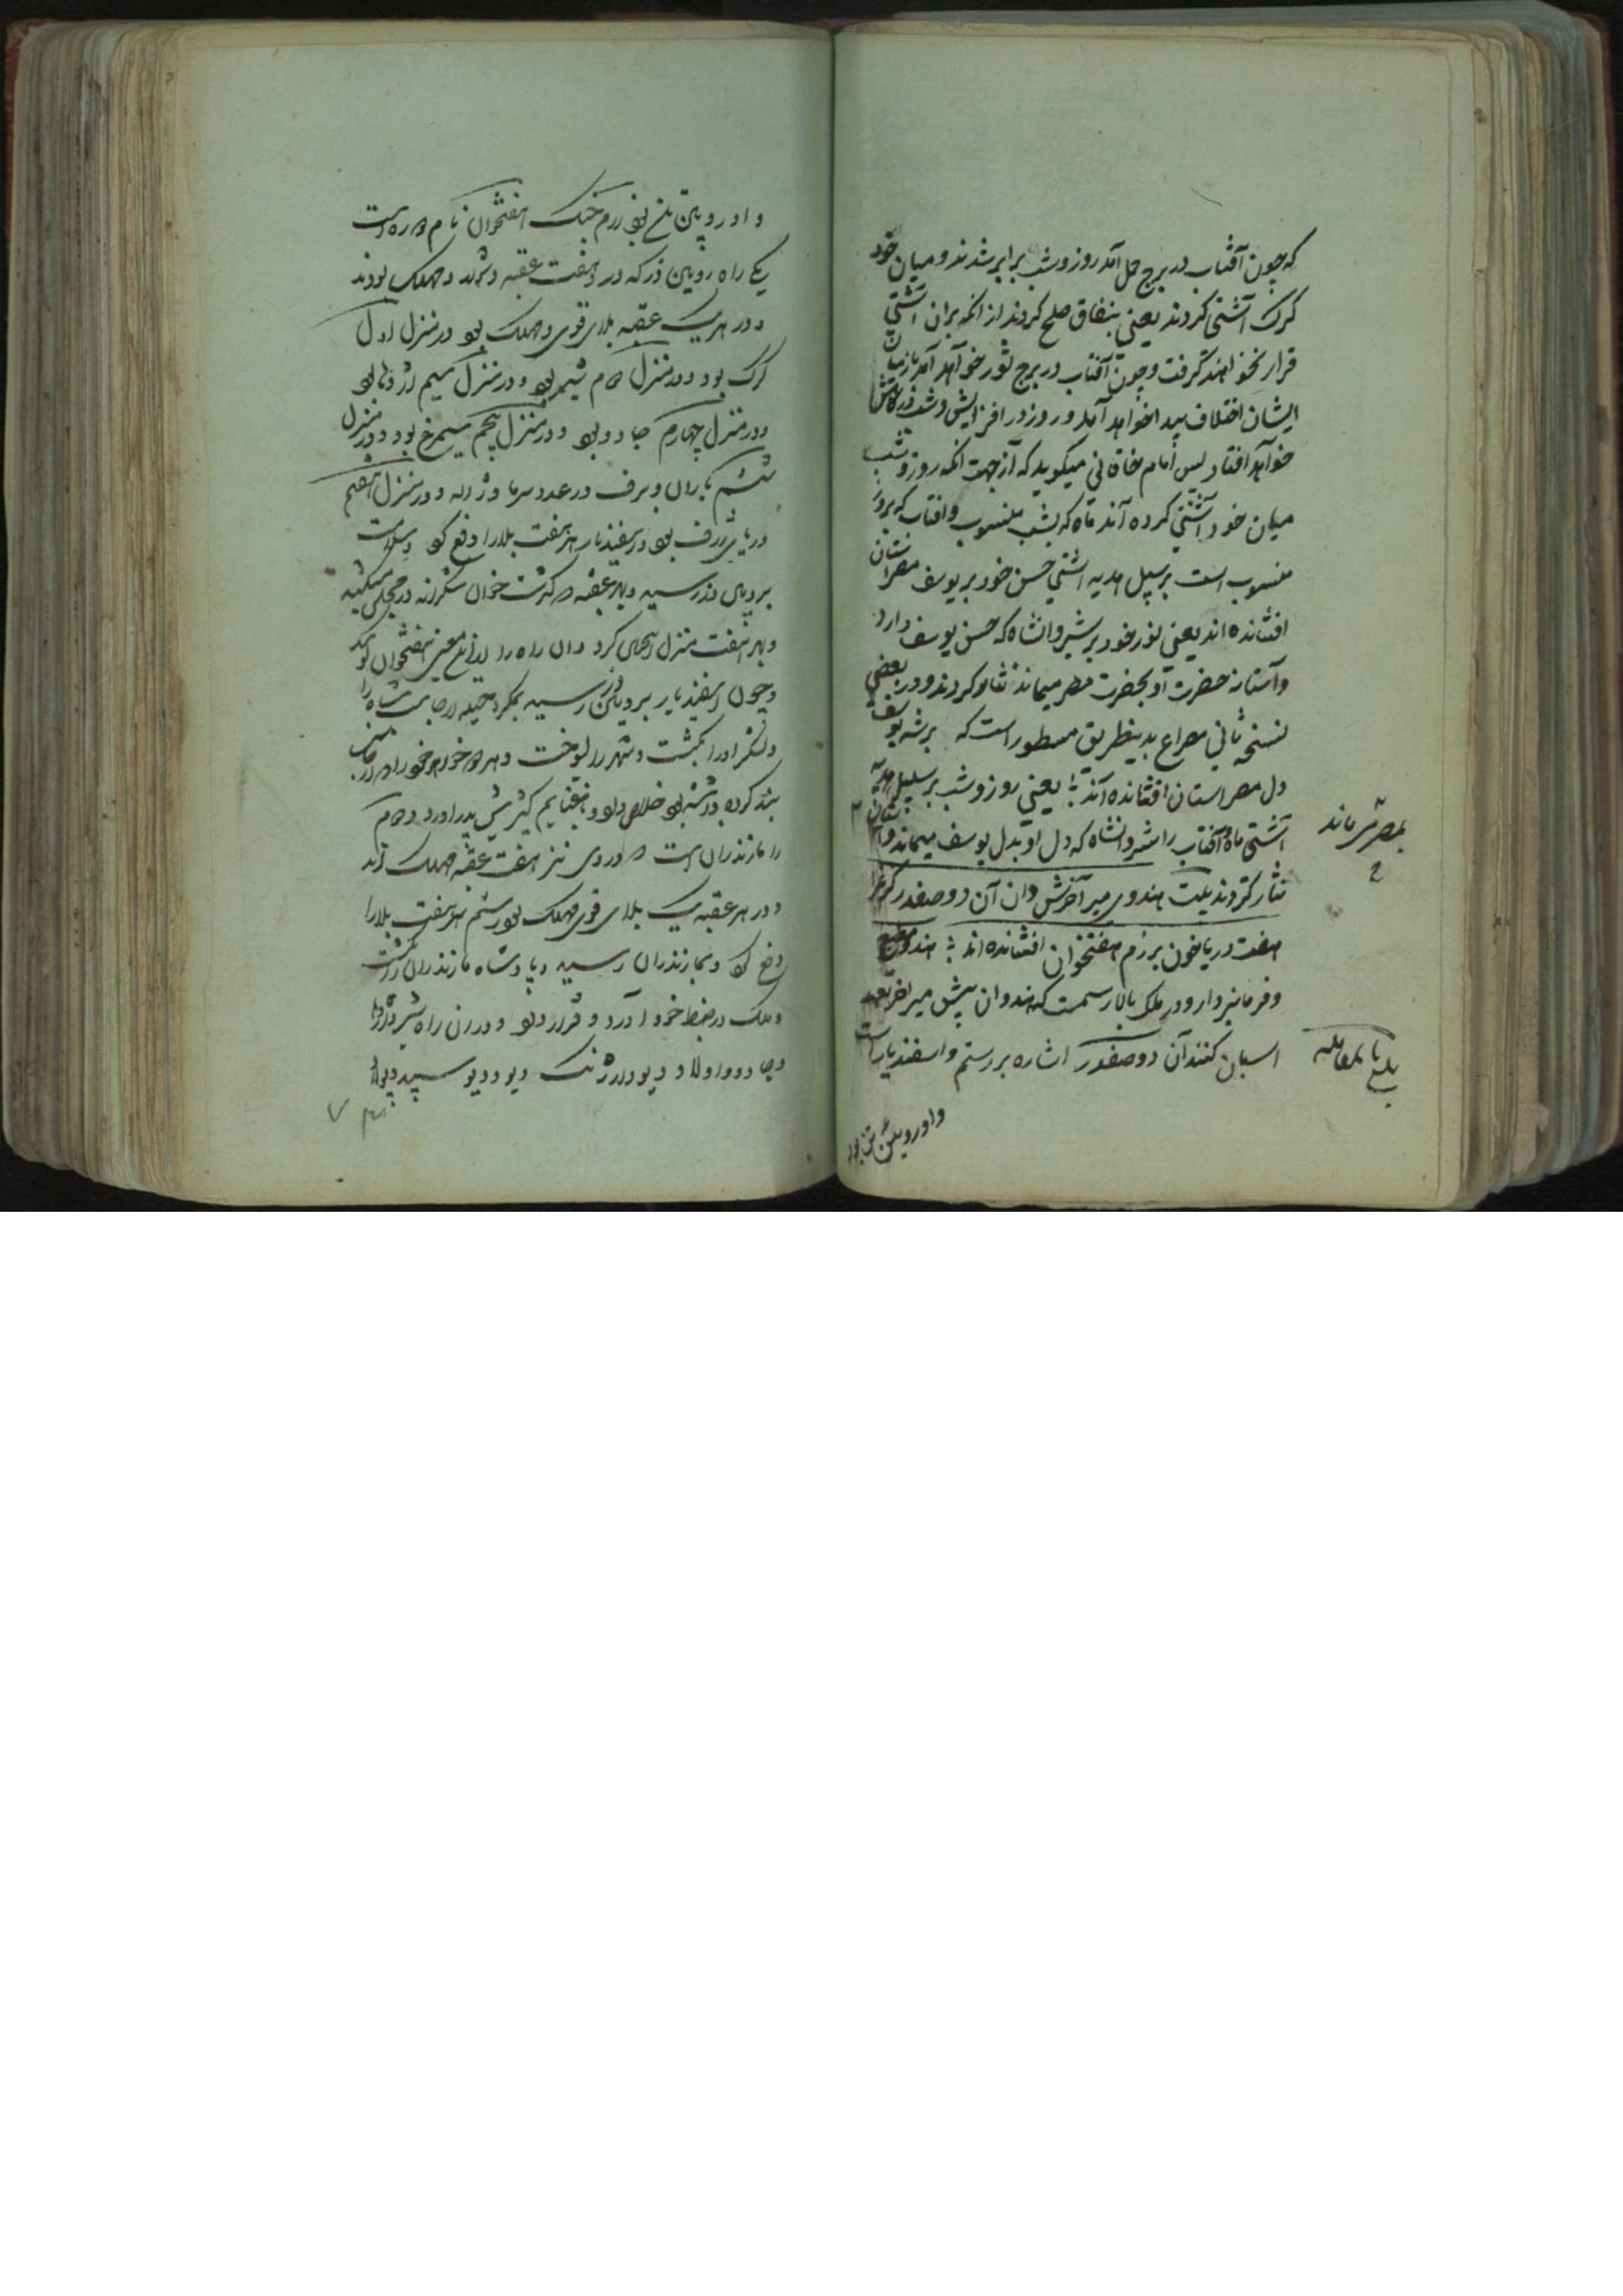 که چون آفتاب در برج حمل آمد روز و شب برابر شدند و میان خود
کرک آشتی کردند یعنی بنفاق صلح کردند از انکه بران آشتی
قرار نخواهند کرفت و چون آفتاب در برج ثور خواهد آمد باز میان
ایشان اختلاف پیدا خواهد آمد و روز در افزایش و شب در کاهش
خواهد افتاد پس امام خاقانی میکوید که از جهت انکه روز و شب
میان خود آشتی کرده اند ماه که بشب منسوب و افتاب که بروز
منسوب است بر سبیل هدیه اشتی حسن خود بر یوسف مصراستان
افشانده اند یعنی نور خود بر شیروانشاه که حسن یوسف دارد
و آستانه حضرت او بحضرت مصر میماند نثار کردند و در بعضی
نسخه ثانی مصراع بدینطریق مسطور است که بر شه یوسف
دل مصر استان افشانده اند یعنی روز و شب بر سبیل هدیه
آشتی ماه و آفتاب را شروانشاه که دل او بدل یوسف میماند و آستان
نثار کردند بیت هندوی میر آخرش دان آن دو صفدر کز غزا
هفت دریا خون برزم هفتخوان افشانده اند هندو مطیع
و فرمانبردار و در ملک بالا رسمست که هندوان پیش میر اخر تعهد
اسبان کنند آن دو صفدر اشاره بر رستم و اسفندیار است
بمصر میماند
و او رویین تن بود
و او رویین تن بود رزم جنک هفتخوان نام دو راه است
یکی راه رویین دز که در هفت عقبه و مهلک بودند
و در هر یک عقبه بلای قوی و مهلک بود در منزل اول
کرک بود و در منزل دوم شیر بود و در منزل سیم اژدها بود
و در منزل چهارم جادو بود و در منزل پنجم سیمرغ بود و در منزل
ششم باران و برف و رعد و سرما و ژاله و در منزل هفتم
دریای ژرف بود و اسفندیار هر هفت بلا را دفع کرد و بسلامت
برویین دز رسید و بهر عقبه که کذشت خوان شکرانه
و بهر هفت منزل کرد و آن راه را بدان معنی هفتخوان کویند
و چون اسفندیار برویین دز رسید بمکر و حیله ارجاسب شاه را
و لشکر او را بکشت و شهر را بسوخت و هر دو خواهر خود را که ارجاسب
بند کرده داشته بود خلاص داد و پیش پدر آورد و دوم
راه مازندران است که در وی نیز هفت عقبه مهلک اند
و در هر عقبه یک بلای قوی مهلک بود رستم هر هفت بلا را
دفع کرد و بمازندران رسید و پادشاه مازندران را بکشت
و ملک در ضبط خود آورد و قرار داد و در ان راه شیر و اژدها
و جادو و اولاد و دیو و ارژنک دیو و دیو سپید بود